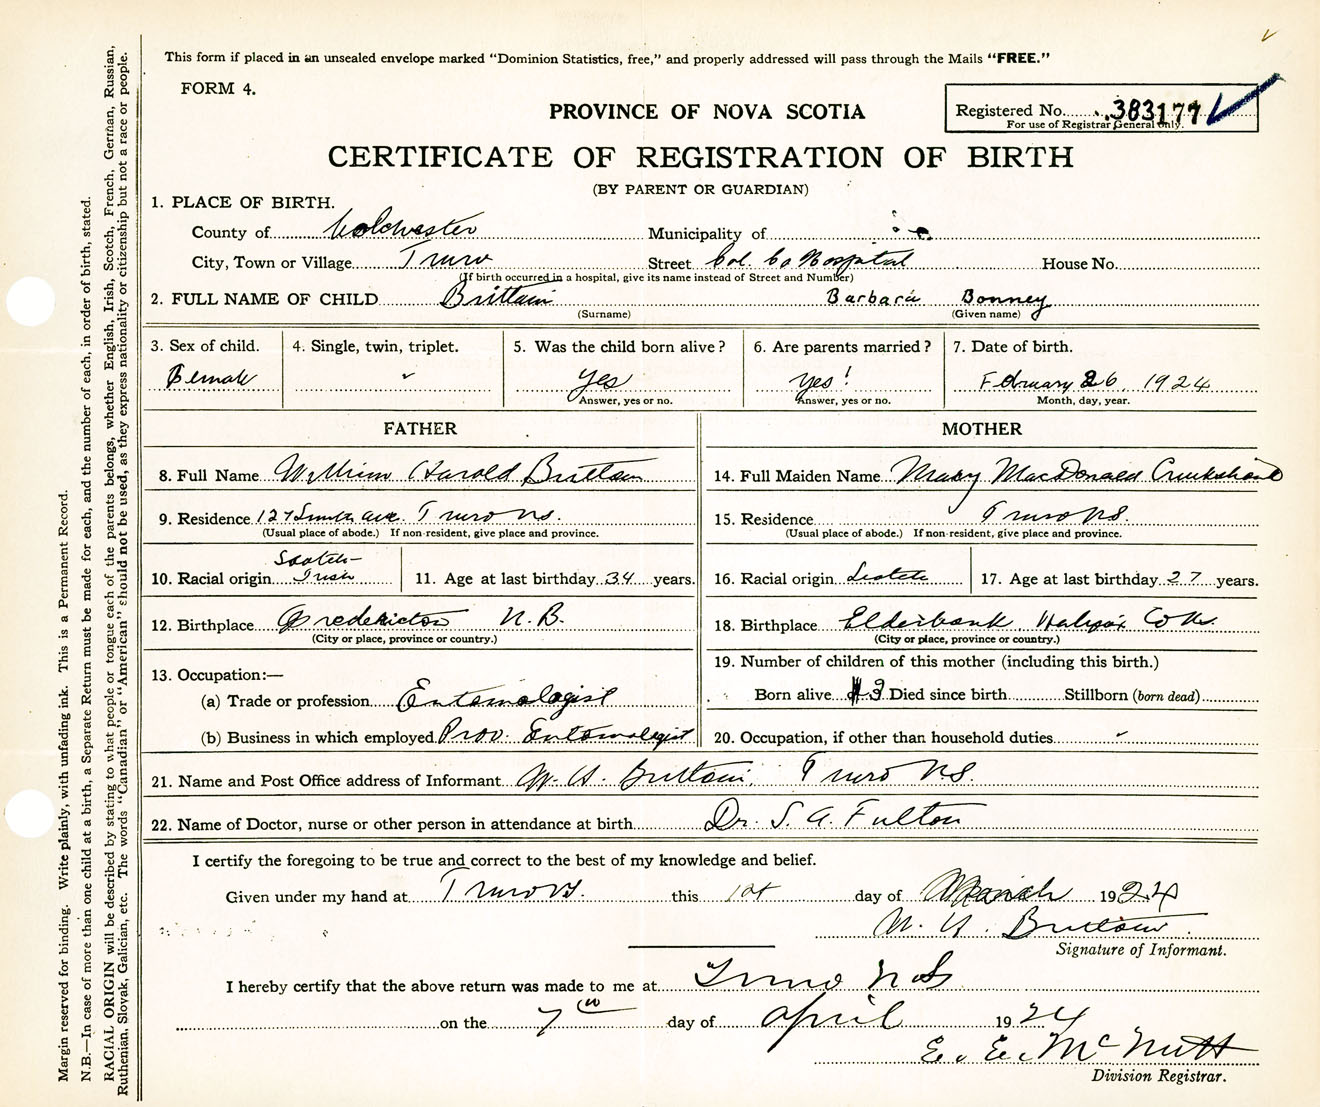 This form if placed in an unsealed envelope marked “Dominion Statistics, free,” and properly addressed will pass through the Mails “FREE.”
FORM 4.
PROVINCE OF NOVA SCOTIA
Registered No. 383177
For use of Registrar General only.
CERTIFICATE OF REGISTRATION OF BIRTH
(BY PARENT OR GUARDIAN)
1. PLACE OF BIRTH.
County of Colchester Municipality of
City, Town or Village Truro Street Col. Co Hospital House No.
(If birth occurred in a hospital, give its name instead of Street and Number)
2. FULL NAME OF CHILD Brittain Barbara Bonney
(Surname) (Given name)
3. Sex of child. 4. Single, twin, triplet. 5. Was the child born alive? 6. Are parents married? 7. Date of birth.
Female yes yes! February 26, 1924
Answer, yes or no. Answer, yes or no. Month, day, year.
FATHER MOTHER
8. Full Name William Harold Brittain 14. Full Maiden Name Mary MacDonald Cruikshank
9. Residence 127 Smith ave. Truro N.S. 15. Residence Truro N.S.
(Usual place of abode.) If non-resident, give place and province. (Usual place of abode.) If non-resident, give place and province.
Scotch-
10. Racial origin Irish 11. Age at last birthday 34 years. 16. Racial origin Scotch 17. Age at last birthday 27 years.
12. Birthplace Fredericton N.B. 18. Birthplace Elderbank Halifax Co N.S.
(City or place, province or country.) (City or place, province or country.)
13. Occupation:— 19. Number of children of this mother (including this birth.)
(a) Trade or profession Entomologist Born alive 3 Died since birth Stillborn (born dead)
(b) Business in which employed Prov. Entomologist 20. Occupation, if other than household duties
21. Name and Post Office address of Informant W. H. Brittain, Truro N.S.
22. Name of Doctor, nurse or other person in attendance at birth Dr. S. A. Fulton
I certify the foregoing to be true and correct to the best of my knowledge and belief.
Given under my hand at Truro N.S. this 1st day of March 1924
W. H. Brittain
Signature of Informant.
I hereby certify that the above return was made to me at Truro N S
on the 7th day of April 1924
E. E. McNutt
Division Registrar.
Margin reserved for binding. Write plainly, with unfading ink. This is a Permanent Record.
N.B.—In case of more than one child at a birth, a Separate Return must be made for each, and the number of each, in order of birth, stated.
RACIAL ORIGIN will be described by stating to what people or tongue each of the parents belongs, whether English, Irish, Scotch, French, German, Russian,
Ruthenian, Slovak, Galician, etc. The words “Canadian” or “American” should not be used, as they express nationality or citizenship but not a race or people.